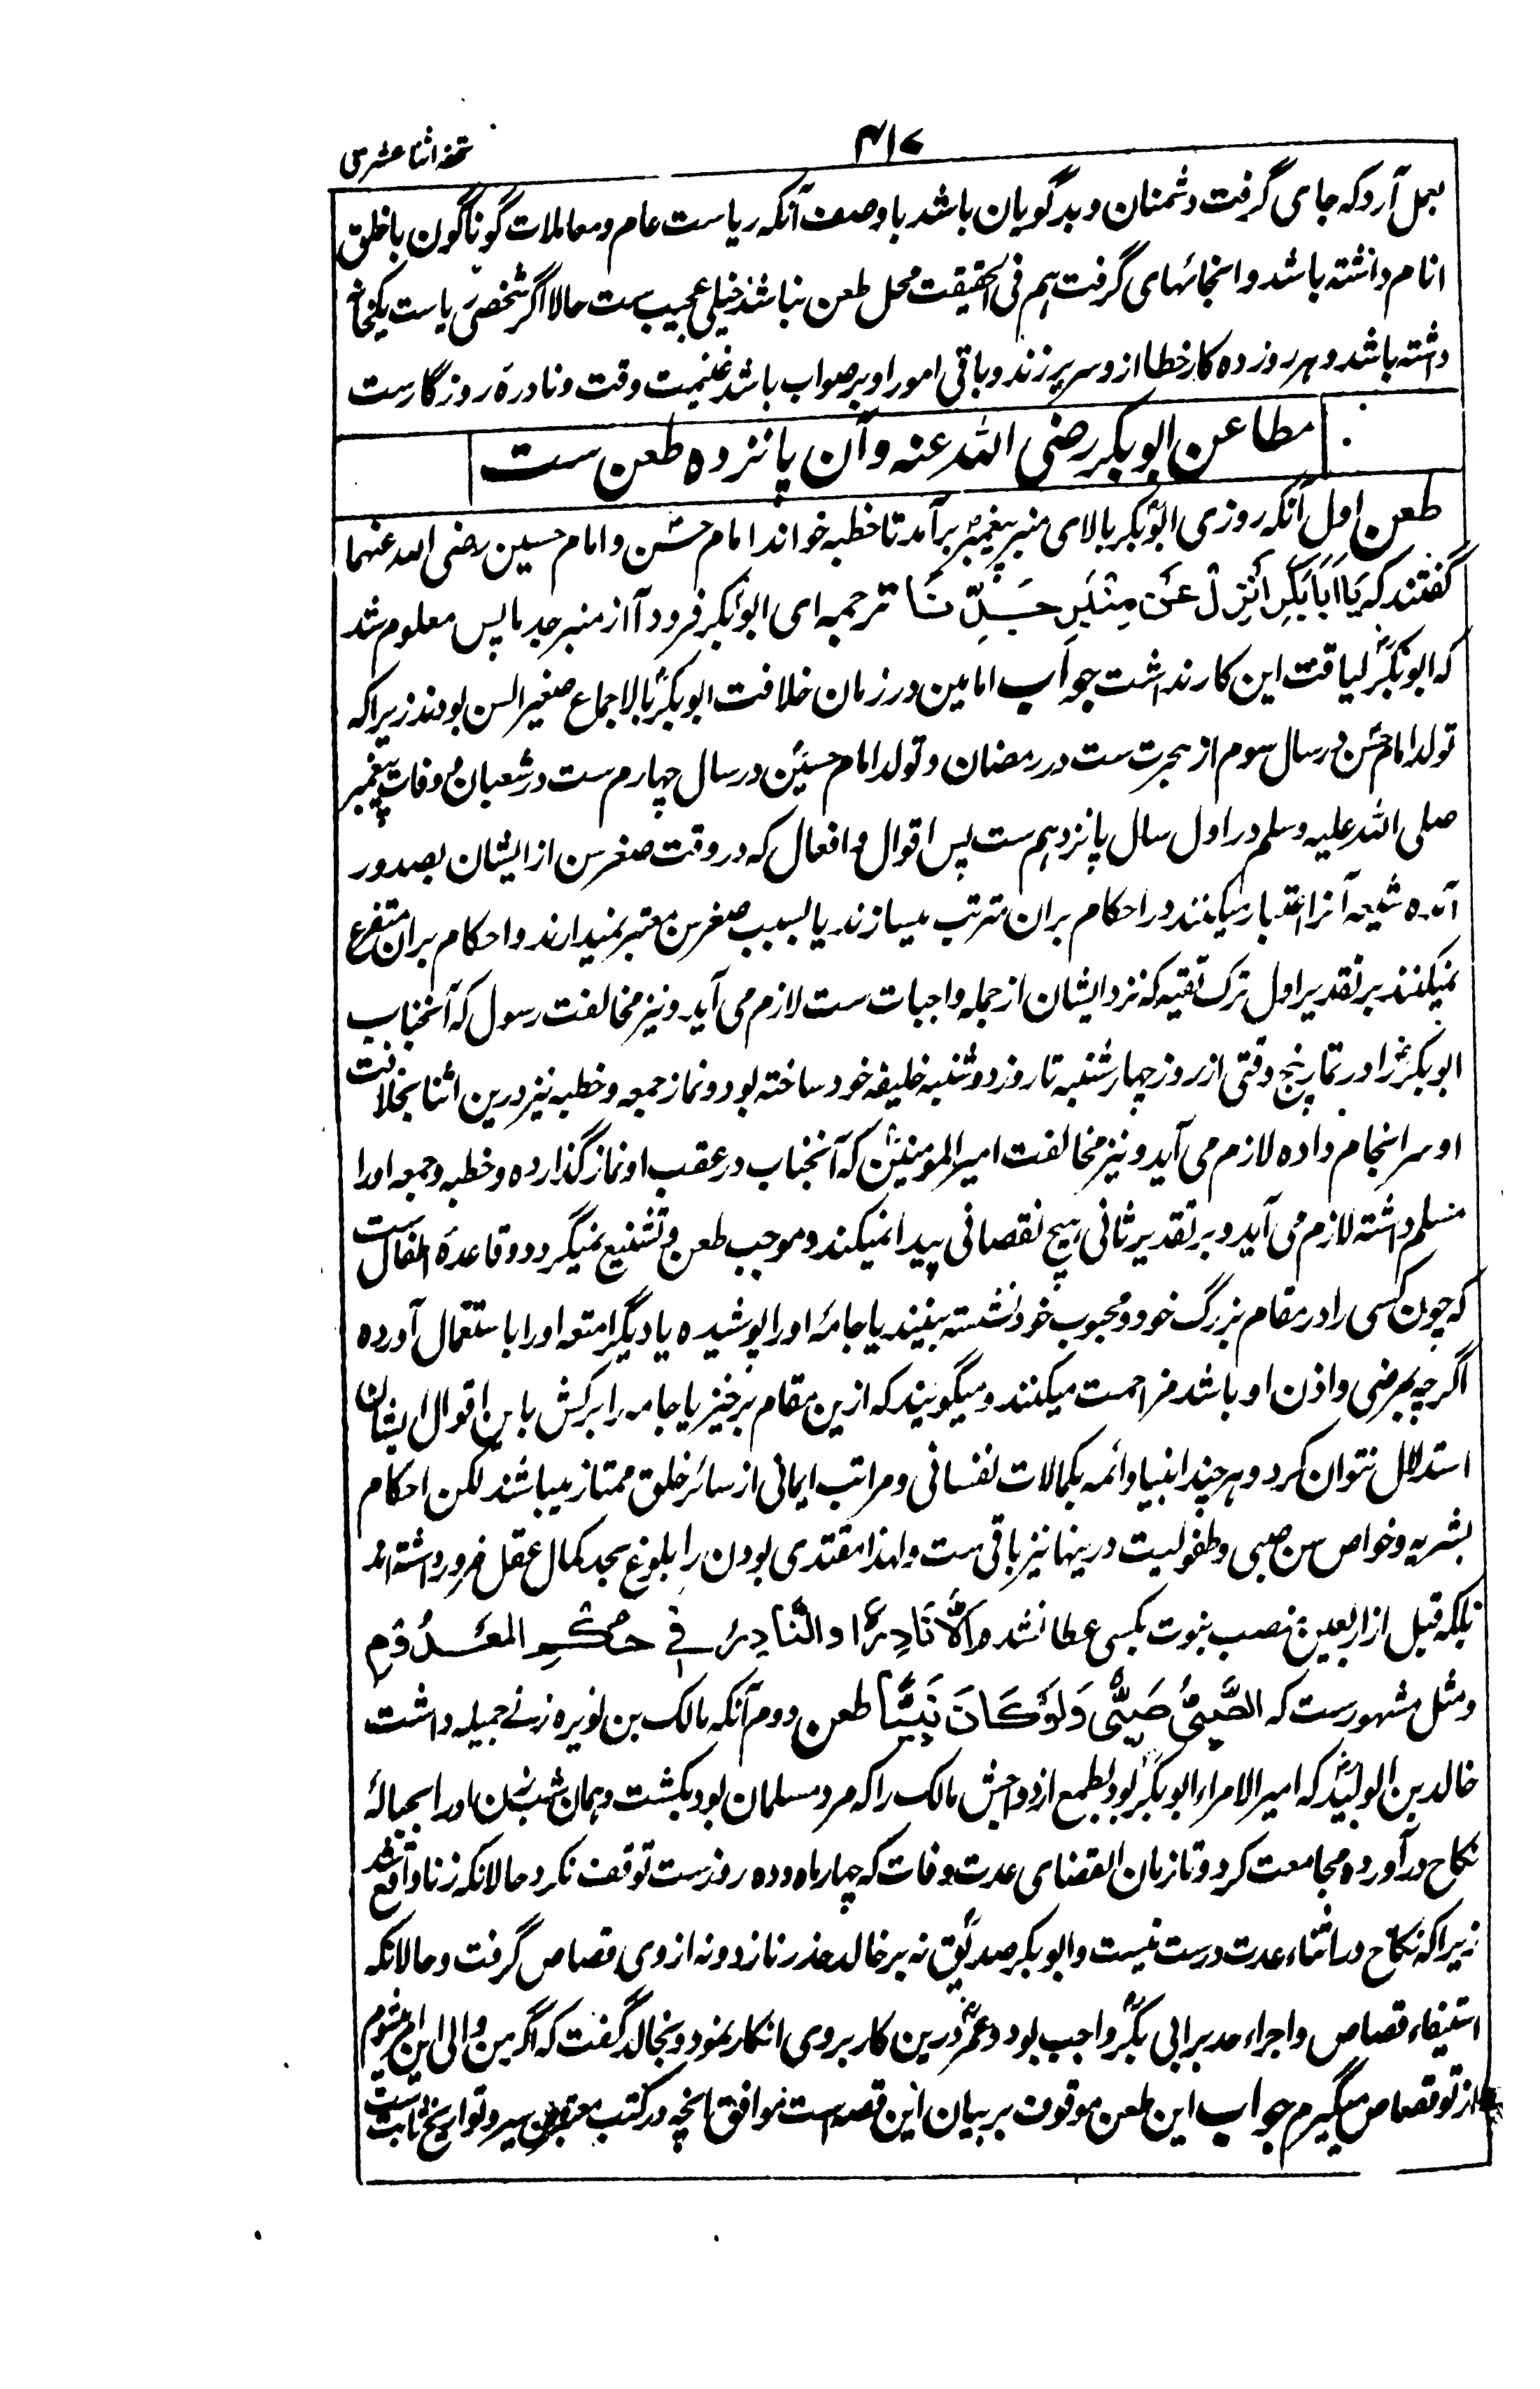 تحفه اثنا عشری
۴۱۷
بعمل آرد که جای گرفت دشمنان و بدگویان باشد باوصف آنکه ریاست عام و معاملات گوناگون با خلق
انام داشته باشد و اینجائهای گرفت هم فی الحقیقت محل طعن نباشد خیلی عجیب ست حالا اگر شخصی ریاست یکخانه
داشته باشد و هر روز ده کار خطا از و سر برزند و باقی امور او بر صواب باشد غنیمت وقت و نادرهٔ روزگار ست
مطاعن ابوبکر رضی الله عنه و آن پانزده طعن ست
طعن اول آنکه روزی ابوبکرؓ بالای منبر پیغمبرؐ برآمد تا خطبه خواند امام حسنؓ و امام حسین رضی الله عنهما
گفتند که یَا اَبَا بَکرِ اَنزِل عَن مِنبَرِ جَدِّنَا ترجمه ای ابوبکر فرود آ از منبر جد ما پس معلوم شد
که ابوبکرؓ لیاقت این کار نداشت جواب امامین در زمان خلافت ابوبکرؓ بالاجماع صغیر السن بودند زیرا که
تولد امام حسنؓ در سال سوم از هجرت ست در رمضان و تولد امام حسینؓ در سال چهارم ست در شعبان و وفات پیغمبر
صلی الله علیه وسلم در اول سال یازدهم ست پس اقوال و افعال که در وقت صغر سن از ایشان بصدور
آمده شیعه آنرا اعتبار میکنند و احکام بران مترتب میسازند یا بسبب صغر سن معتبر نمیدارند و احکام بران متفرع
نمیکنند بر تقدیر اول ترک تقیه که نزد ایشان از جمله واجبات ست لازم می آید و نیز مخالفت رسول که آنجناب
ابوبکرؓ را در نماز پنج وقتی از روز چهارشنبه تا روز دوشنبه خلیفه خود ساخته بود و نماز جمعه و خطبه نیز درین اثنا بخلافت
او سرانجام داده لازم می آید و نیز مخالفت امیر المومنینؓ که آنجناب در عقب او نماز گذارده و خطبه و جمعه او را
مسلم داشته لازم می آید و بر تقدیر ثانی هیچ نقصانی پیدا نمیکند و موجب طعن و تشنیع نمیگردد و قاعدهٔ اطفال ست
که چون کسی را در مقام بزرگ خود و محبوب خود نشسته بینند یا جامهٔ او را پوشیده یا دیگر امتعه او را باستعمال آورده
اگرچه بمرضی و اذن او باشد مزاحمت میکنند و میگویند که ازین مقام برخیز یا جامه را برکش باین اقوال ایشان
استدلال نتوان کرد و هرچند انبیا و ائمه بکمالات نفسانی و مراتب ایمانی از سائر خلق ممتاز میباشند لکن احکام
بشریه و خواص سن صبی و طفولیت درینها نیز باقی ست و لهذا مقتدی بودن را بلوغ بحد کمال عقل ضرور داشته اند
بلکه قبل از اربعین منصب نبوت بکسی عطا نشد اِلَّا نَادِرًا والنَّادِرُ فی حُکمِ المَعدُومِ
و مثل مشهور ست که الصَّبِیُّ صَبِیٌّ وَلَو کَانَ نَبِیًّا طعن دوم آنکه مالک بن نویره زنے جمیله داشت
خالد بن الولیدؓ که امیر الامراء ابوبکرؓ بود بطمع ازدواجش مالک را که مرد مسلمان بود بکشت و همان شب زن او را بحبالهٔ
نکاح درآورده مجامعت کرد و تا زمان انقضای عدت وفات که چهار ماه و ده روز ست توقف نکرد حالانکه زنا واقع شد
زیرا که نکاح در اثناء عدت درست نیست و ابوبکر صدیقؓ نه بر خالد حد زنا زد و نه از وی قصاص گرفت و حالانکه
استیفاء قصاص و اجراء حد بر ابی بکرؓ واجب بود و عمرؓ درین کار بر وی انکار نمود و بخالد گفت که اگر من والی این امر میشوم
از تو قصاص میگیرم جواب این طعن موقوف بر بیان این قصه است موافق آنچه در کتب معتبره سیر و تواریخ ثابت ست